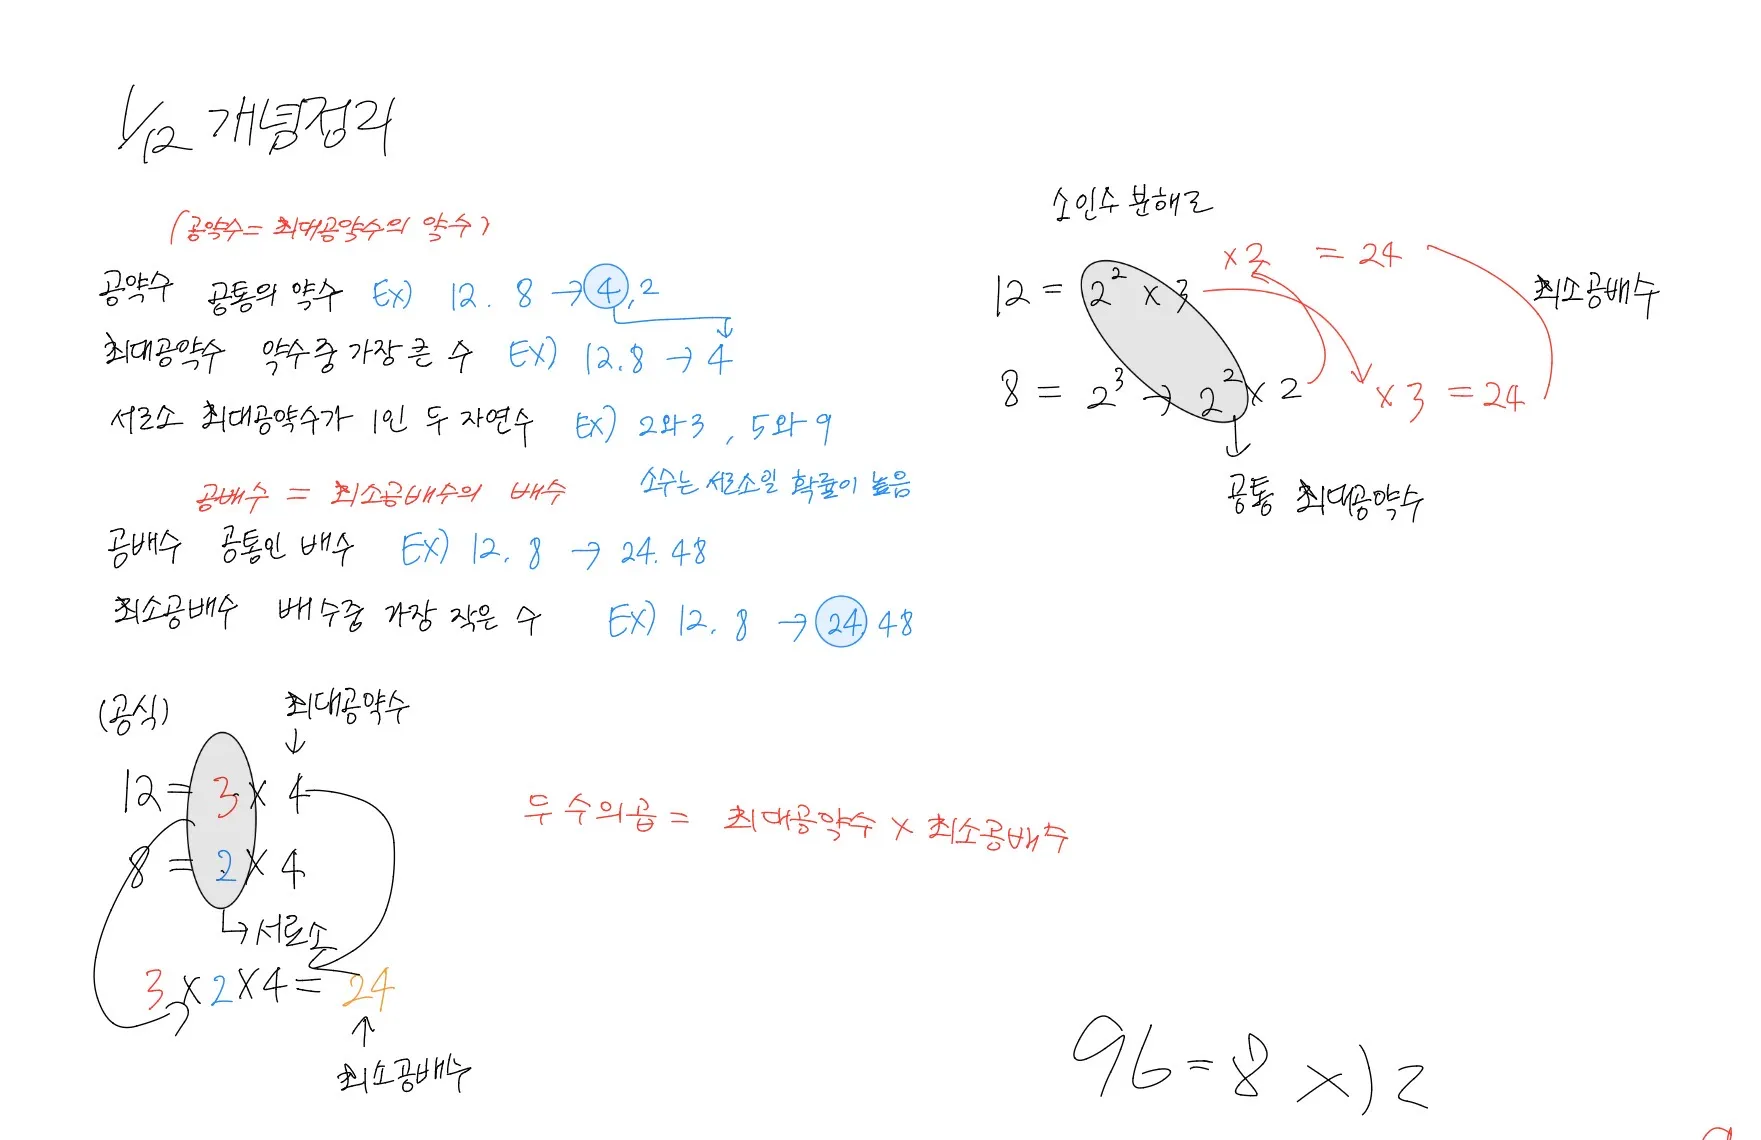 1/12 개념정리
(공약수= 최대공약수의 약수)
공약수 공통의 약수 EX) 12. 8 → 4, 2
최대공약수 약수중 가장 큰 수 EX) 12.8 → 4
서로소 최대공약수가 1인 두 자연수 EX) 2와3 , 5와9
공배수 = 최소공배수의 배수
소수는 서로소일 확률이 높음
공배수 공통인 배수 EX) 12. 8 → 24. 48
최소공배수 배수중 가장 작은 수 EX) 12. 8 → 24. 48
소인수 분해로
12 = 2² x 3 x 2 = 24
최소공배수
8 = 2³ → 2² x 2 x 3 = 24
공통 최대공약수
(공식) 최대공약수
12 = 3 x 4
8 = 2 x 4
→ 서로소
3 x 2 x 4 = 24
최소공배수
두 수의곱 = 최대공약수 x 최소공배수
96 = 8 x 12